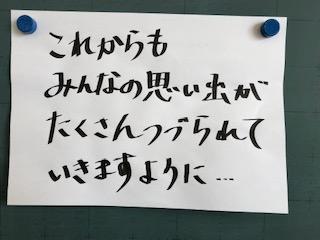 これからも
みんなの思い出が
たくさんつづられて
いきますように…